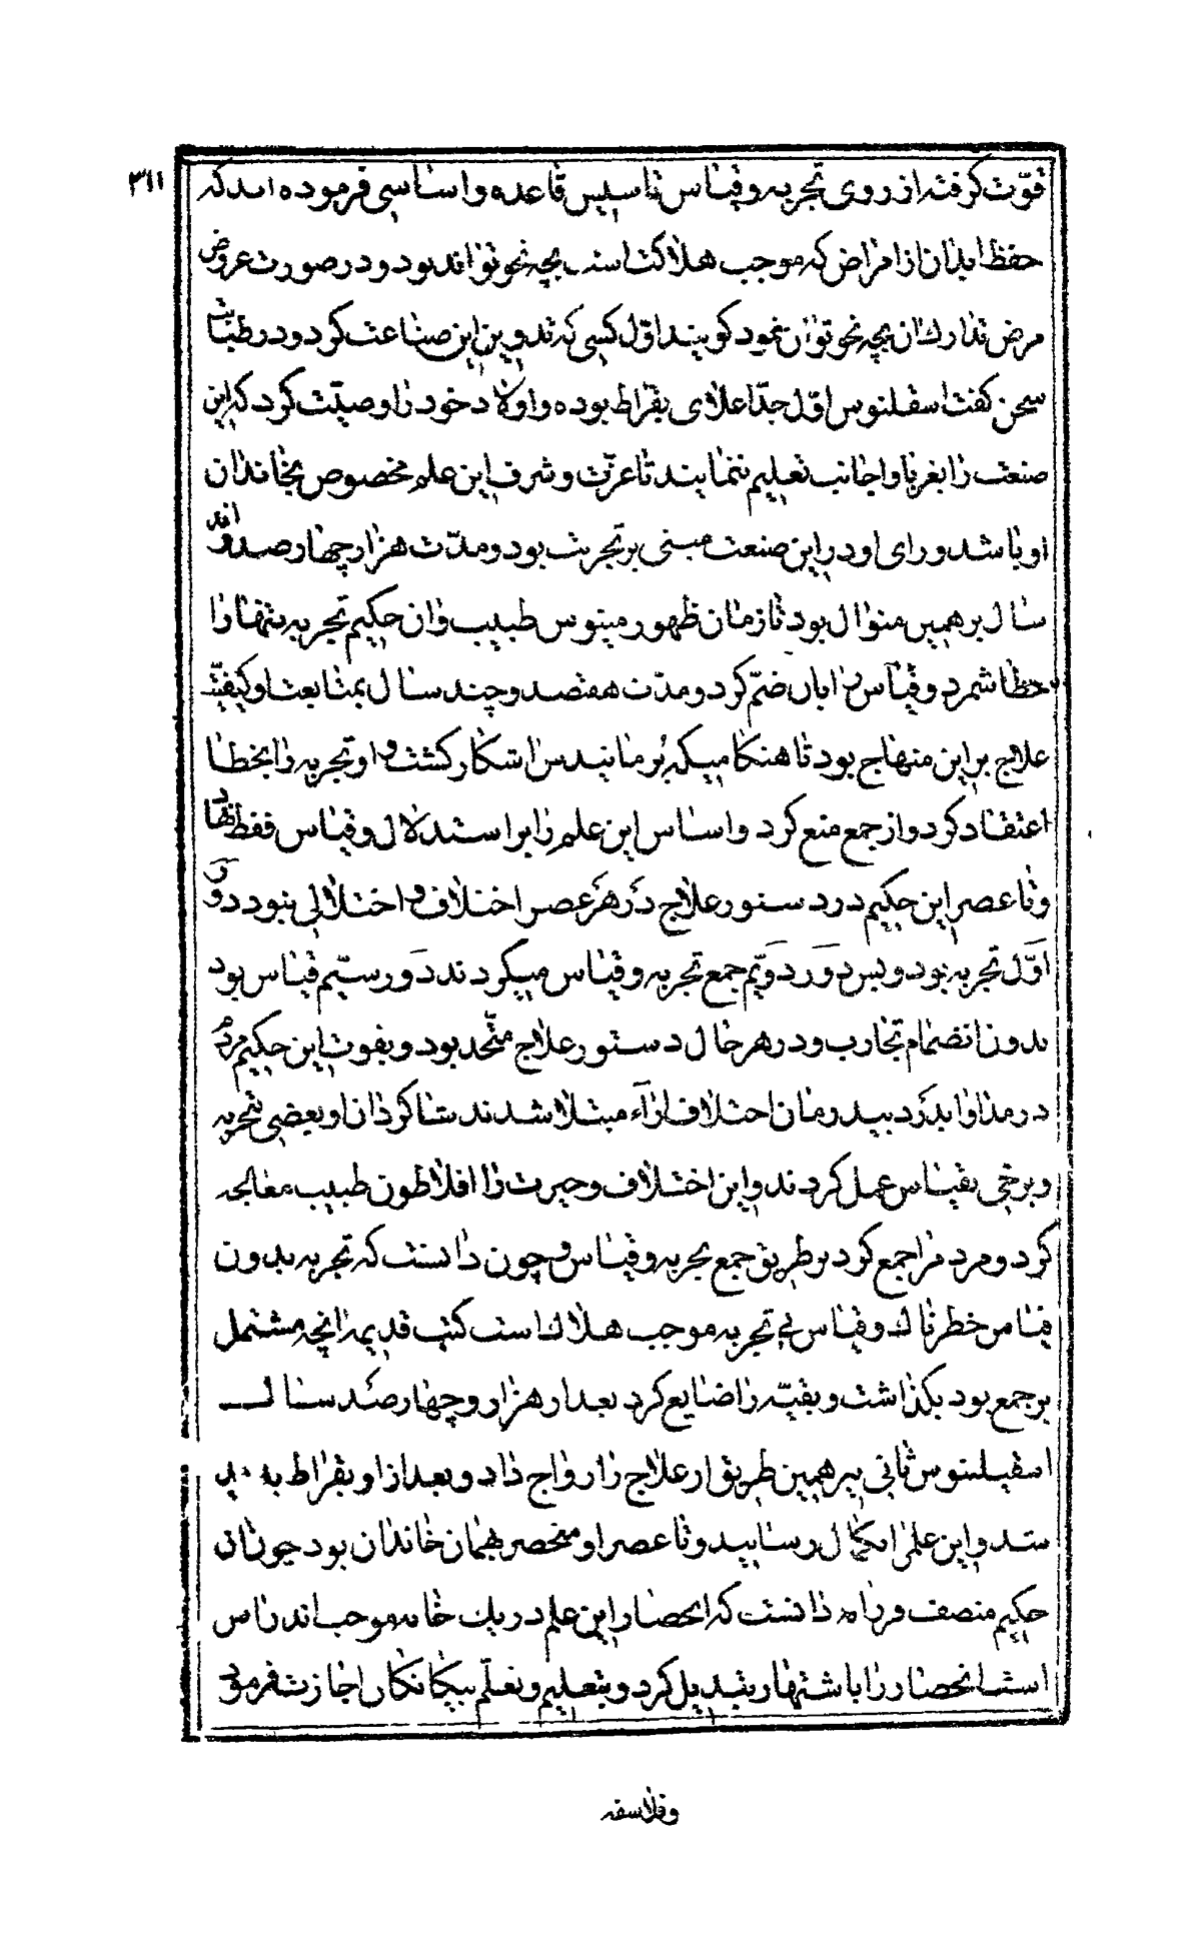 ۳۱۱
قوّت گرفته از روی تجربه و قیاس تاسیس قاعده و اساسی فرموده اند که
حفظ ابدان از امراض که موجب هلاکت است بچه نحو تواند بود و در صورت عروض
مرض تدارک ان بچه نحو توان نمود کویند اوّل کسی که تدوین این صناعت کرد و در طبابت
سخن کفت اسقلنوس اوّل جدّ اعلای بقراط بوده و اولاد خود را وصیّت کرد که این
صنعت را بغربا و اجانب تعلیم ننمایند تا عزّت و شرف این علم مخصوص بخاندان
او باشد و رای او در این صنعت مبنی بر تجربت بود و مدّت هزار چهار صد و اند
سال بر همین منوال بود تا زمان ظهور مینوس طبیب و ان حکیم تجربه تنها را
خطا شمرد و قیاس را بان ضمّ کرد و مدّت هفتصد و چند سال بمتابعت او کیفیّت
علاج بر این منهاج بود تا هنکامیکه برمانیدس اشکار کشت و او تجربه را بخطا
اعتقاد کرد و از جمع منع کرد و اساس این علم را بر استدلال و قیاس فقط نهاد
و تا عصر این حکیم در دستور علاج در هر عصر اختلاف و اختلالی نبود دور
اوّل تجربه بود و بس دور دویّم جمع تجربه و قیاس میکردند دور سیّم قیاس بود
بدون انضمام تجارب و در هر حال دستور علاج متّحد بود و بفوت این حکیم مردم
در مداوا بدرد بیدرمان اختلاف اراء مبتلا شدند شاکردان او بعضی بتجربه
و برخی بقیاس عمل کردند و این اختلاف و حیرت را افلاطون طبیب معالجه
کرد و مردم را جمع کرد بر طریق جمع تجربه و قیاس و چون دانست که تجربه بدون
قیاس خطرناک و قیاس بی تجربه موجب هلاک است کتب قدیمه را انچه مشتمل
بر جمع بود بکذاشت و بقیّه را ضایع کرد بعد از هزار و چهار صد سال
اسقیلنوس ثانی بر همین طریق از علاج را رواج داد و بعد از او بقراط پدید
شد و این علم را بکمال رسانید و تا عصر او منحصر بهمان خاندان بود چون ان
حکیم منصف فرزانه دانست که انحصار این علم در یک خانه موجب اندراس
است انحصار را باشتهار تبدیل کرد و بتعلیم و تعلّم بیکانکان اجازت فرمود
وفلاسفه